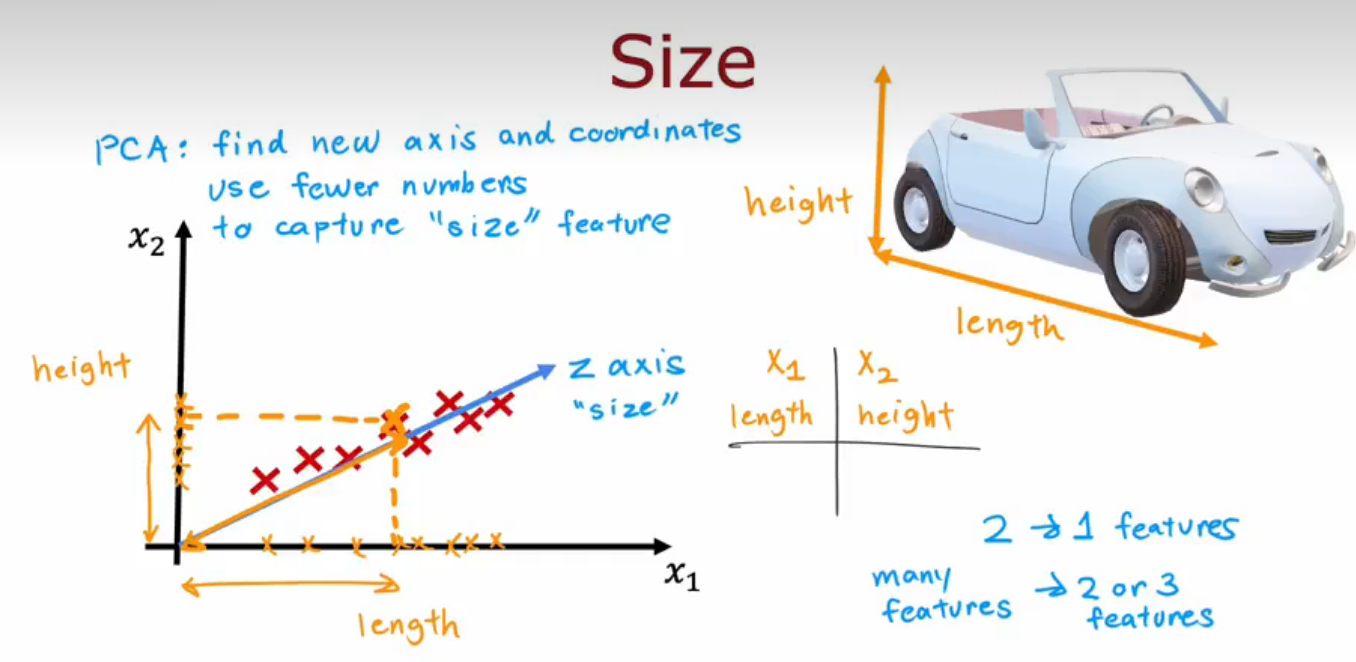 Size
PCA: find new axis and coordinates
use fewer numbers
to capture "size" feature
x₂
height
z axis
"size"
x₁
length
height
length
x₁ x₂
length height
2 → 1 features
many features → 2 or 3 features